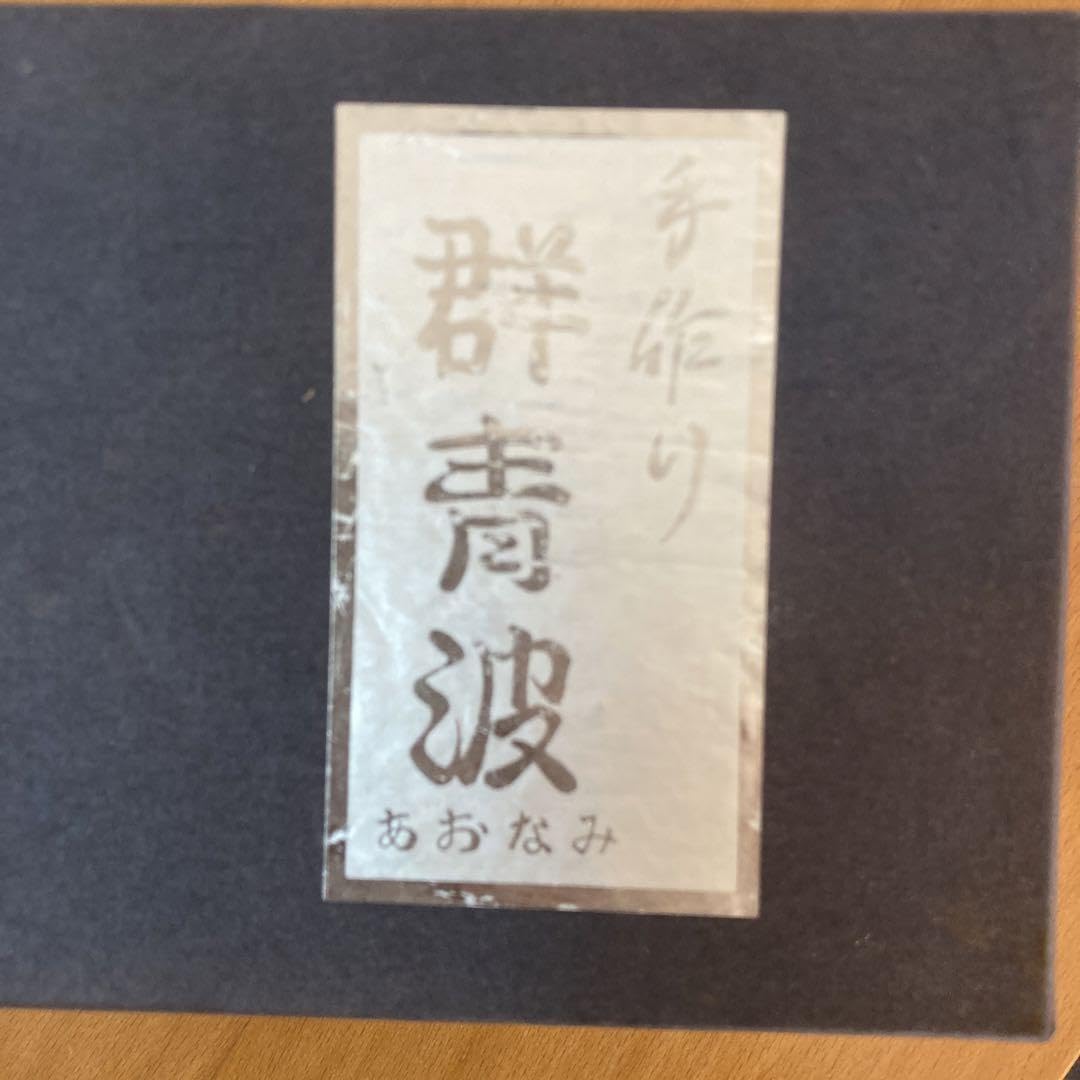 手作り
群青波
あおなみ